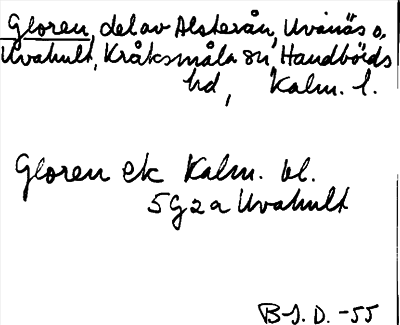 Gloren, del av Alsterån, Uvanäs o.
Uvahult, Kråksmåla sn, Handbörds
hd, Kalm. l.
Gloren ek Kalm. bl.
5 G 2 a Uvahult
B-S. D. -55